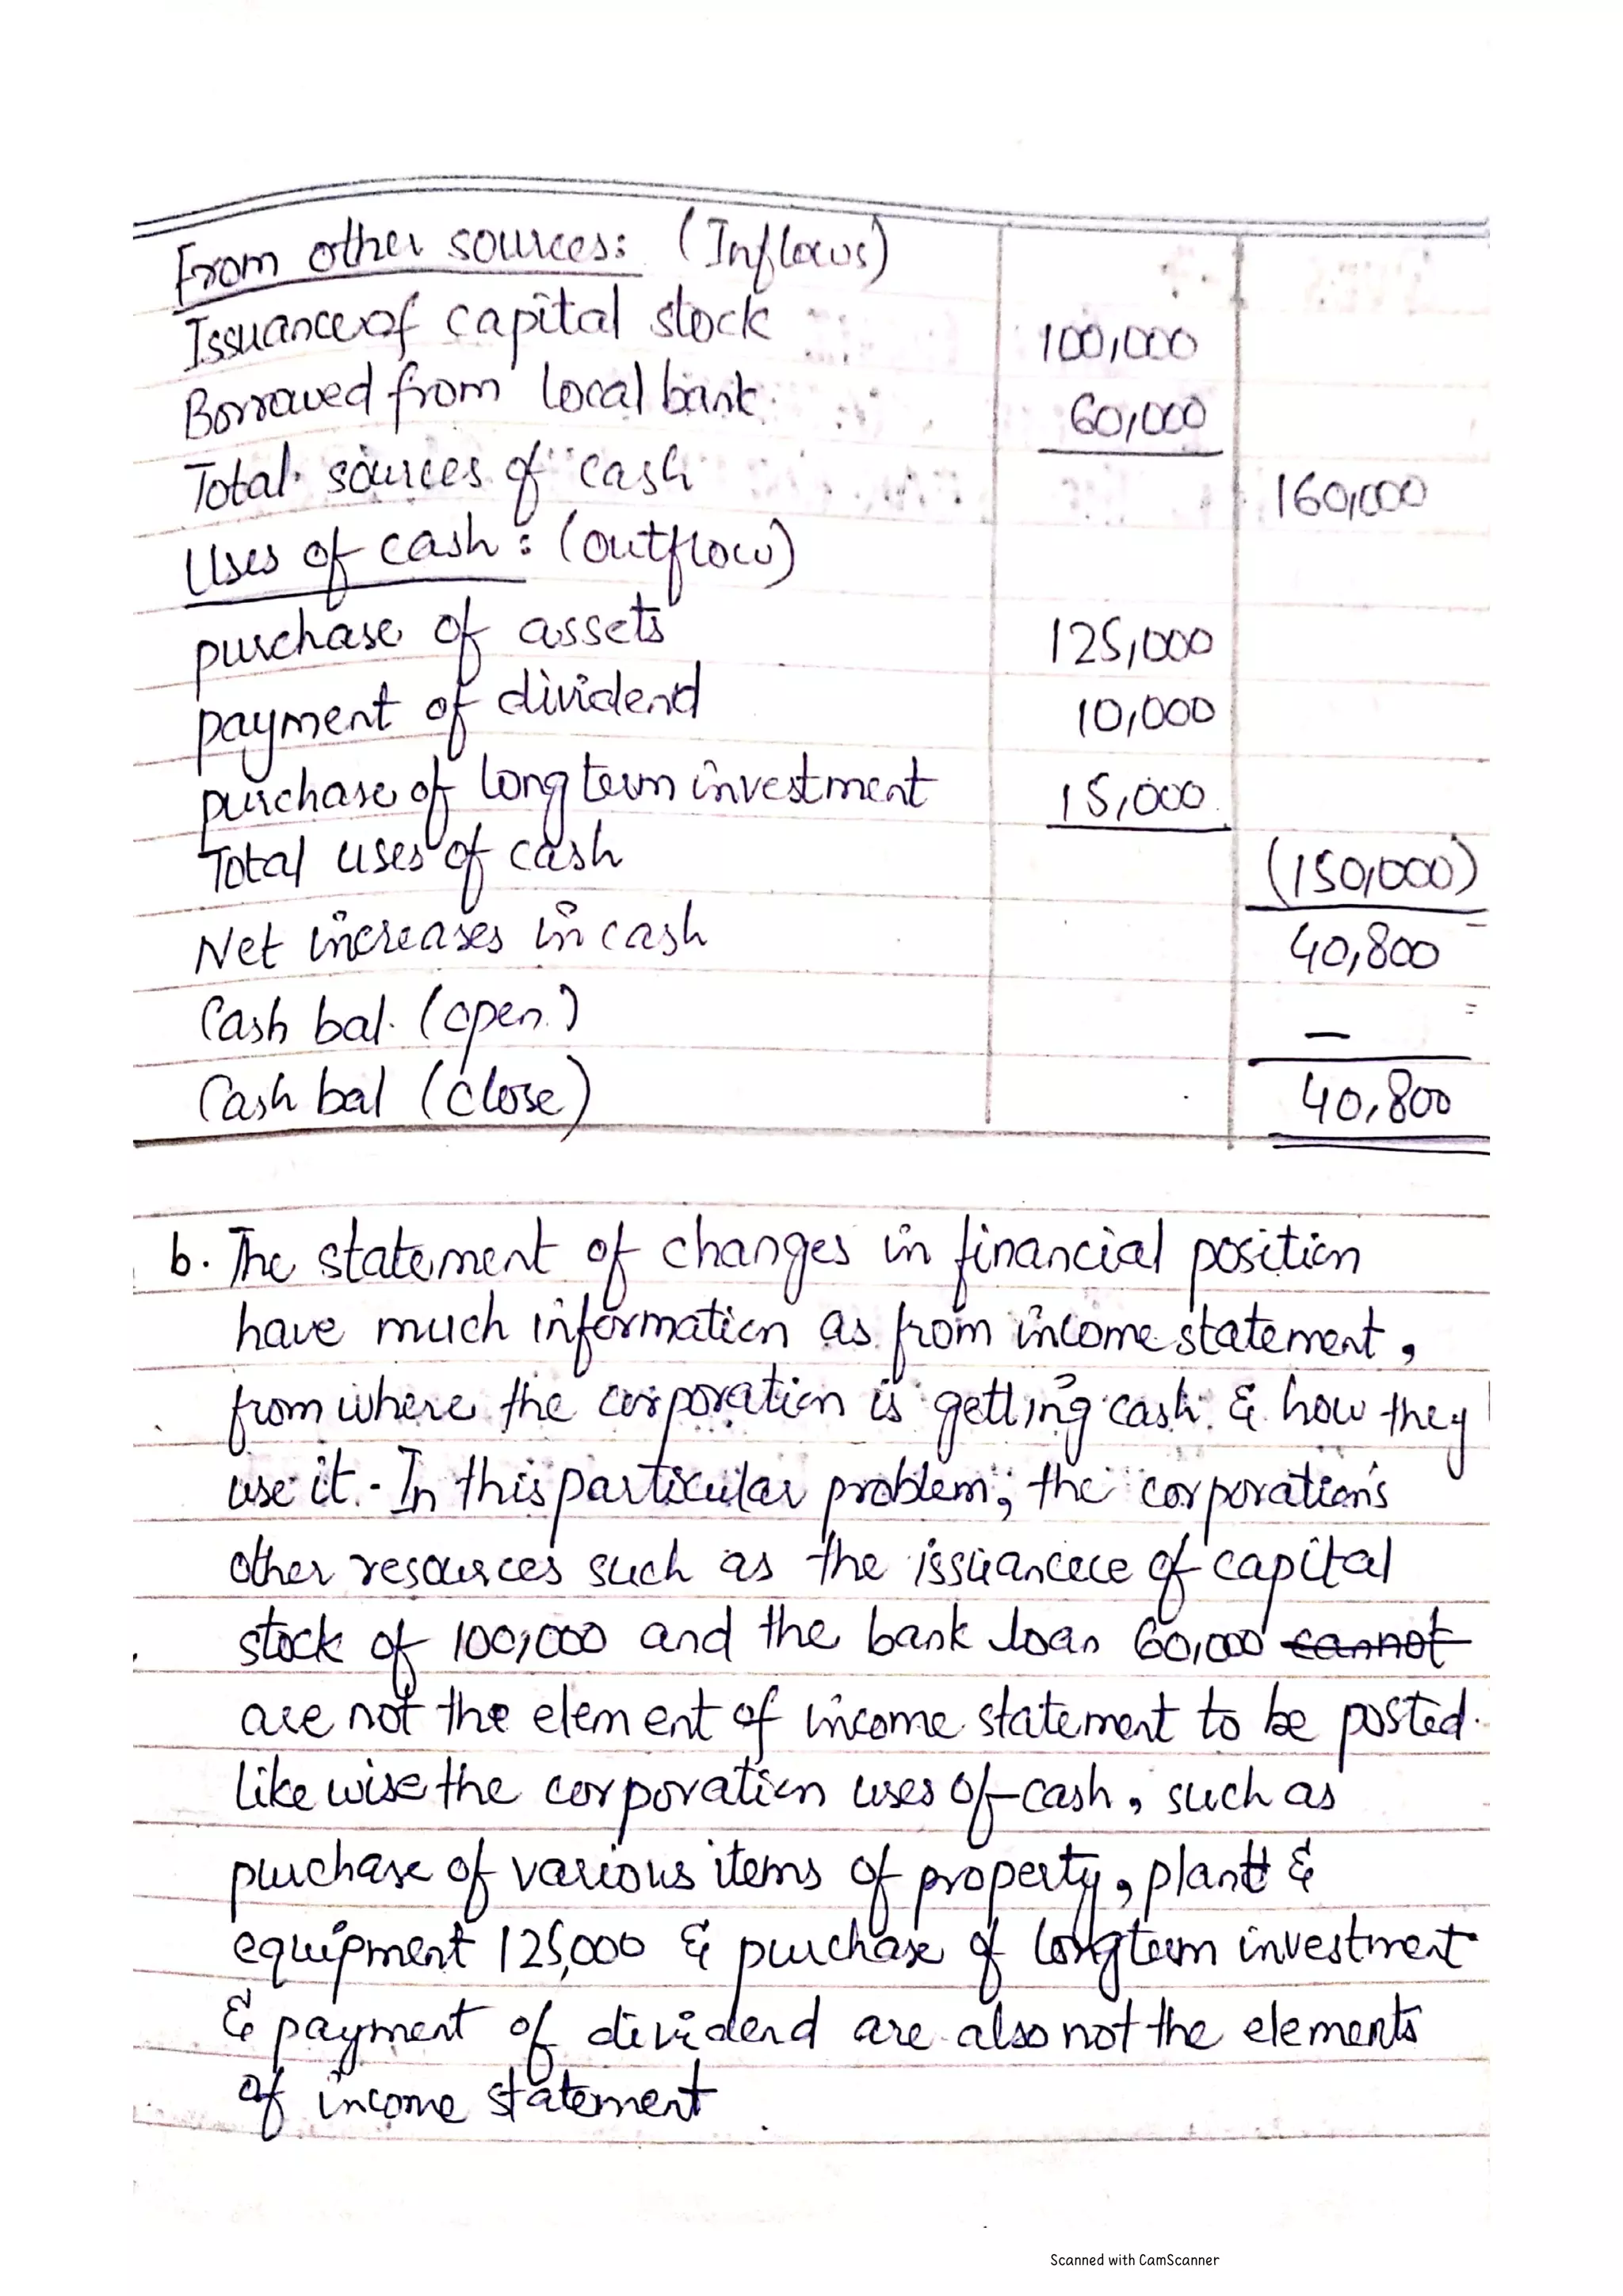 From other sources: (Inflows)
Issuance of capital stock 100,000
Borrowed from local bank 60,000
Total sources of cash 160,000
Uses of cash: (outflow)
purchase of assets 125,000
payment of dividend 10,000
purchase of long term investment 15,000
Total uses of cash (150,000)
Net increases in cash 40,800
Cash bal. (open.) —
Cash bal (close) 40,800
b. The statement of changes in financial position
have much information as from income statement,
from where the corporation is getting cash & how they
use it. - In this particular problem, the corporation's
other resources such as the issuancece of capital
stock of 100,000 and the bank loan 60,000 cannot
are not the element of income statement to be posted.
like wise the corporation uses of cash, such as
purchase of various items of property, plant &
equipment 125,000 & purchase of longterm investment
& payment of dividend are also not the elements
of income statement
Scanned with CamScanner